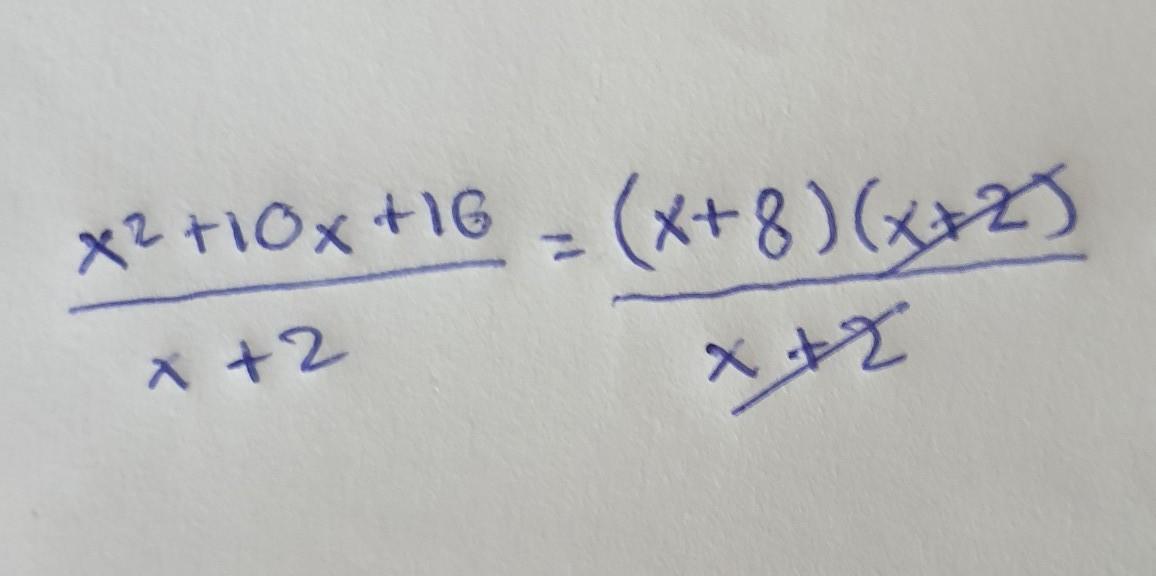 x²+10x+16 = (x+8)(x+2)
x+2 x+2